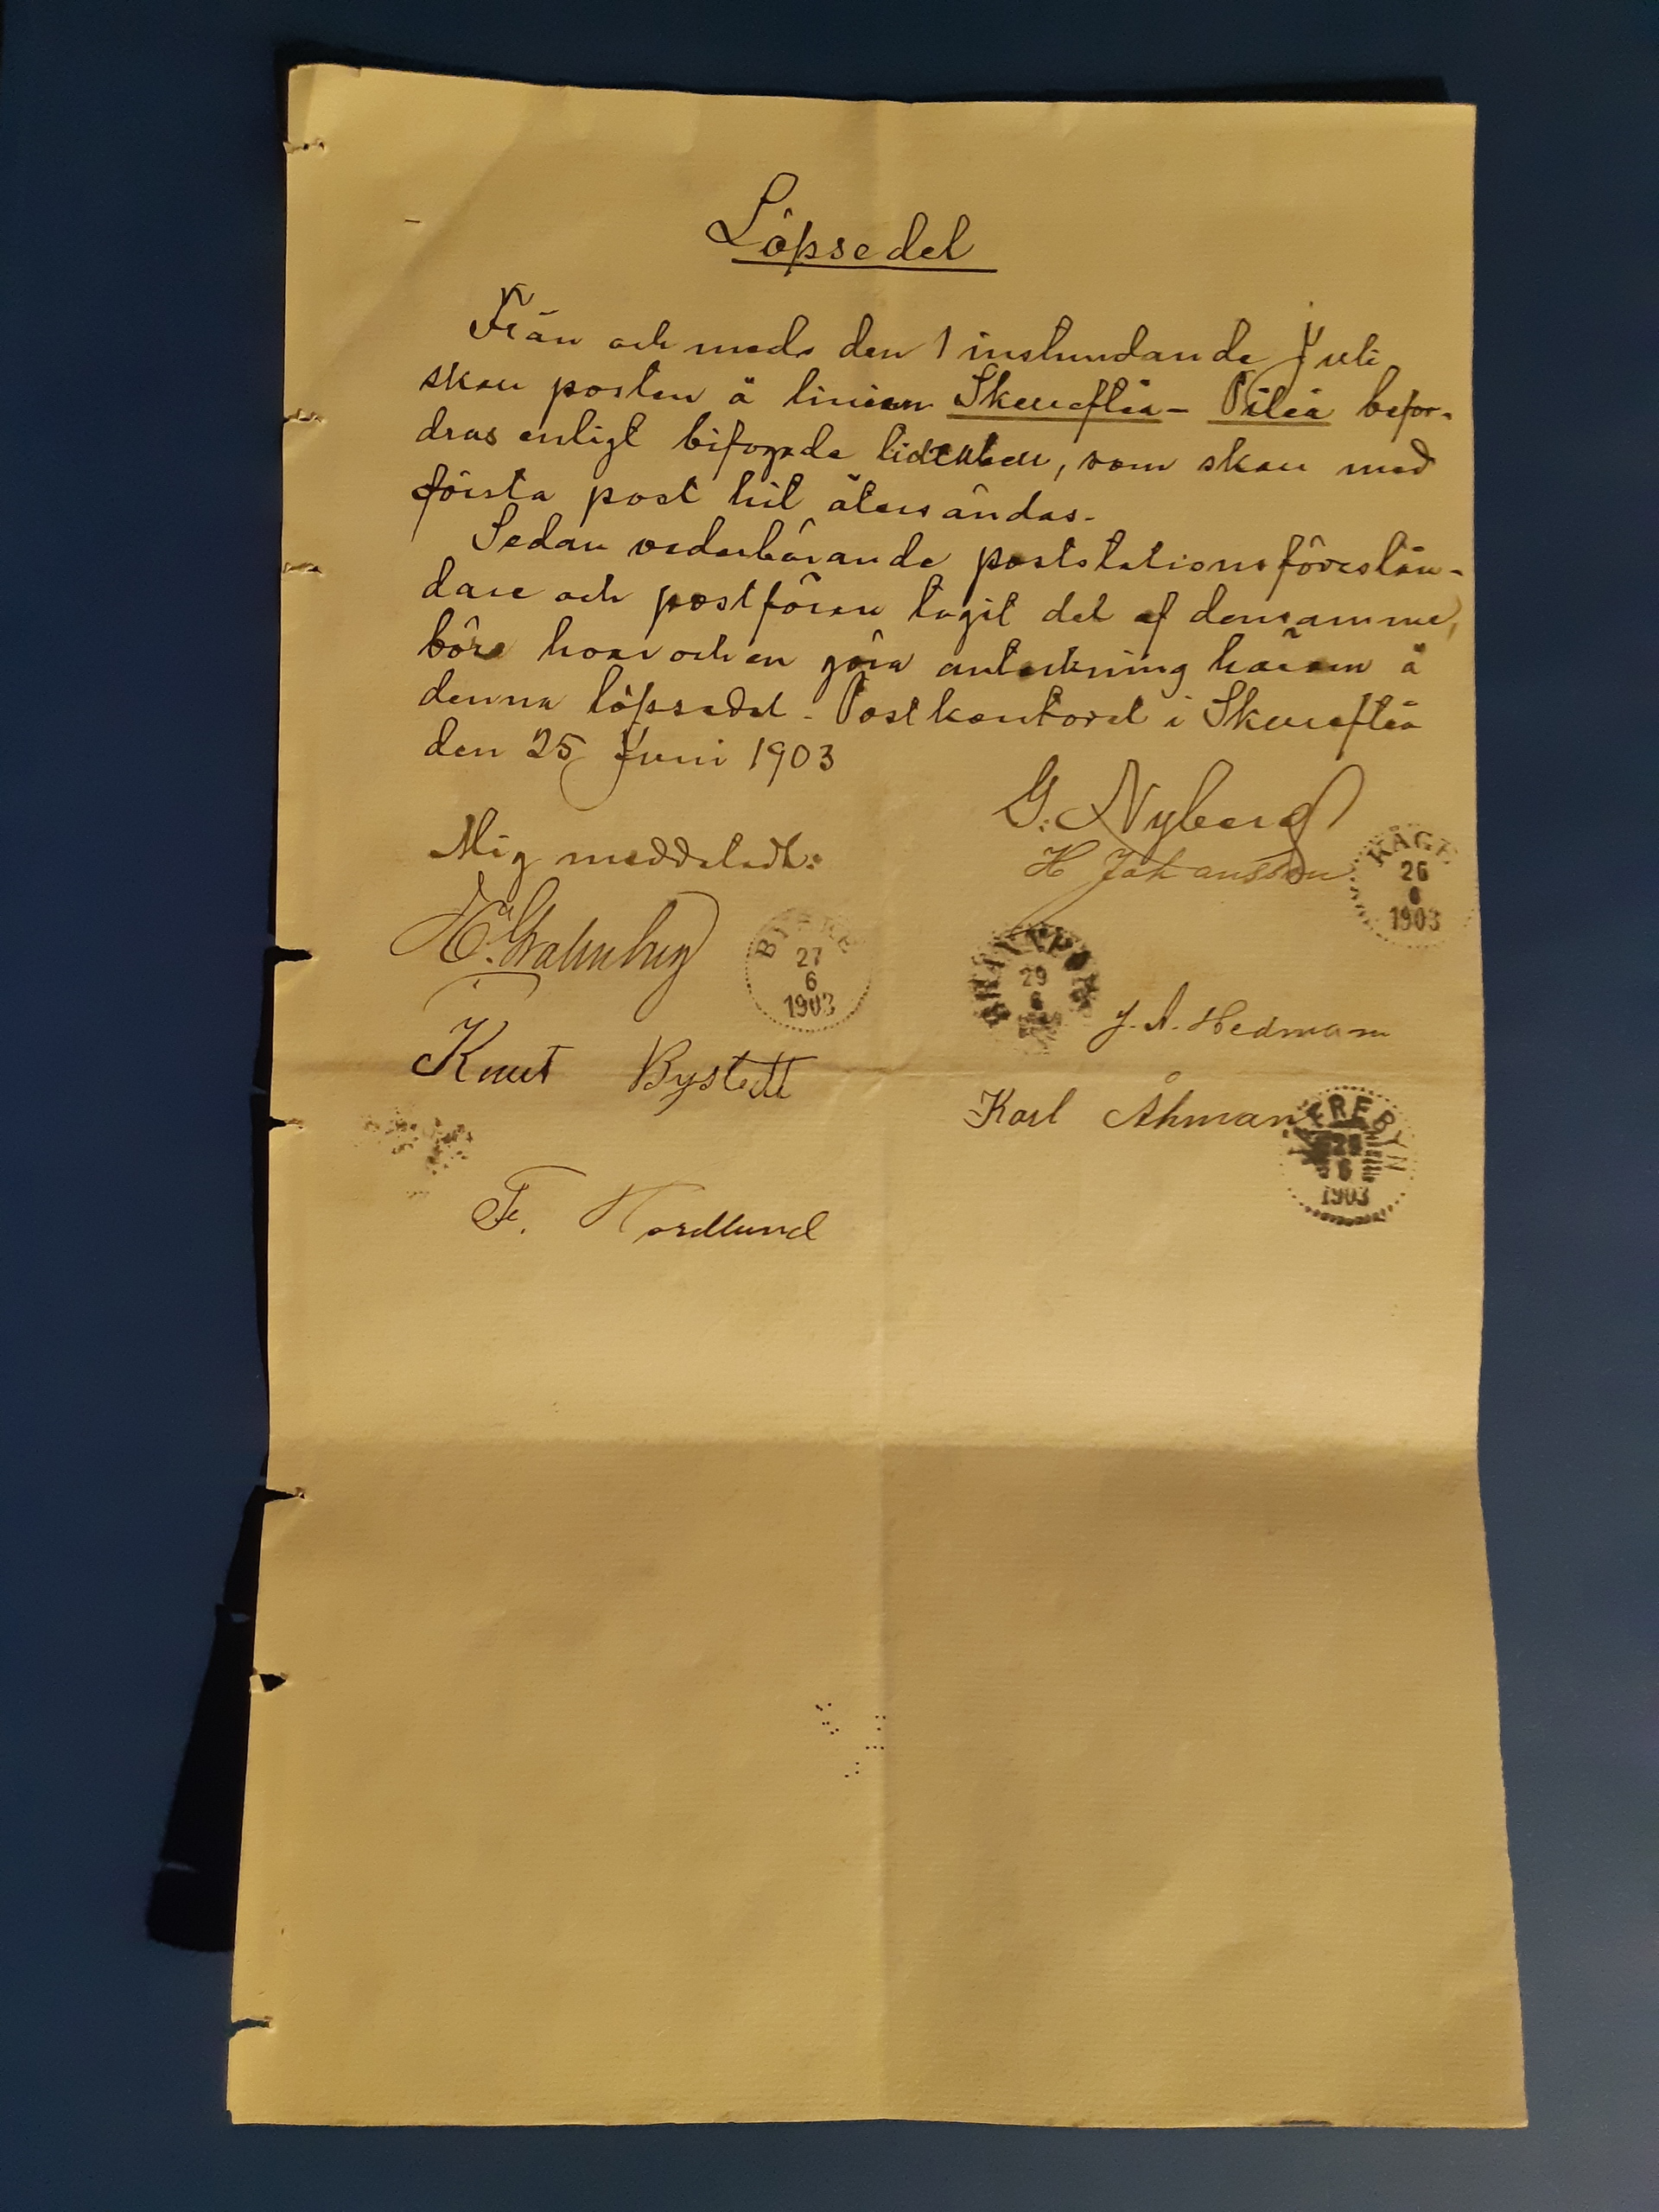 Löpsedel
Från och med den 1 instundande Juli
skall posten å linien Skellefteå - Piteå befor-
dras enligt bifogade tidtabell, som skall med
första post hit återsändas.
Sedan vederbörande poststationsförestån-
dare och postförare tagit del af densamma,
böra hvar och en göra anteckning härom å
denna löpsedel. Postkontoret i Skellefteå
den 25 Juni 1903
G. Nyberg
Mig meddeladt:
H Johansson
KÅGE
26
6
1903
BYSKE
27
6
1903
29
6
J. A. Hedman
Knut Bystedt
Karl Åhman
JÄFREBYN
28
6
1903
Fr. Nordlund